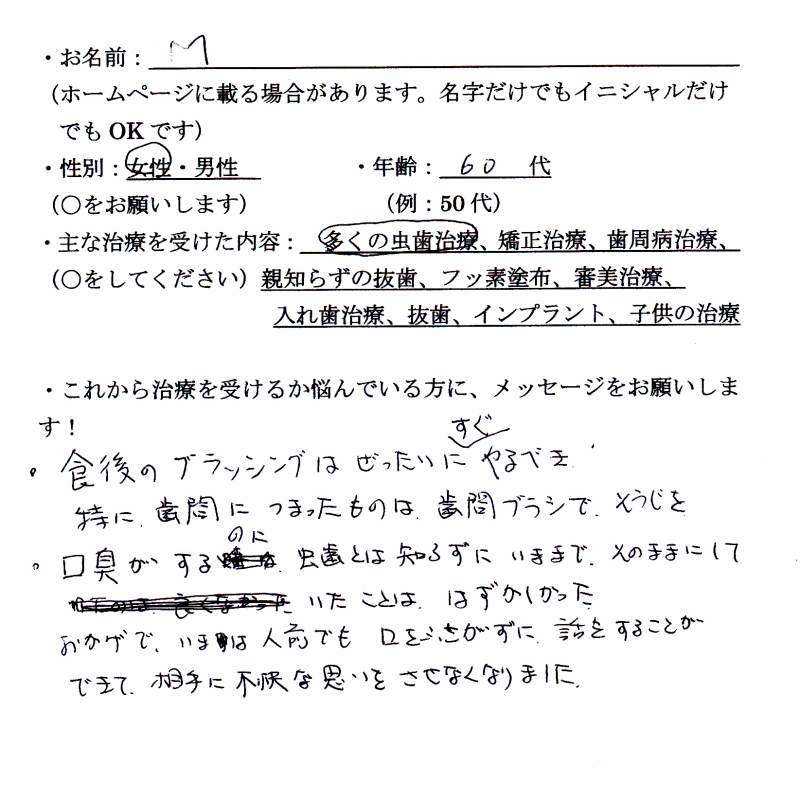 ・お名前： M
（ホームページに載る場合があります。名字だけでもイニシャルだけ
でも OK です）
・性別：女性・男性 ・年齢： 60 代
（○をお願いします） （例：50 代）
・主な治療を受けた内容： 多くの虫歯治療、矯正治療、歯周病治療、
（○をしてください）親知らずの抜歯、フッ素塗布、審美治療、
入れ歯治療、抜歯、インプラント、子供の治療
・これから治療を受けるか悩んでいる方に、メッセージをお願いしま
す！
すぐ
。食後のブラッシングはぜったいに やるべき．
特に、歯間につまったものは、歯間ブラシで、そうじを
のに
。口臭がする 虫歯とは知らずに いままで、そのままにして
いたことは、はずかしかった
おかげで、いまは人前でも 口をふさがずに、話をすることが
できて、相手に不快な思いをさせなくなりました．